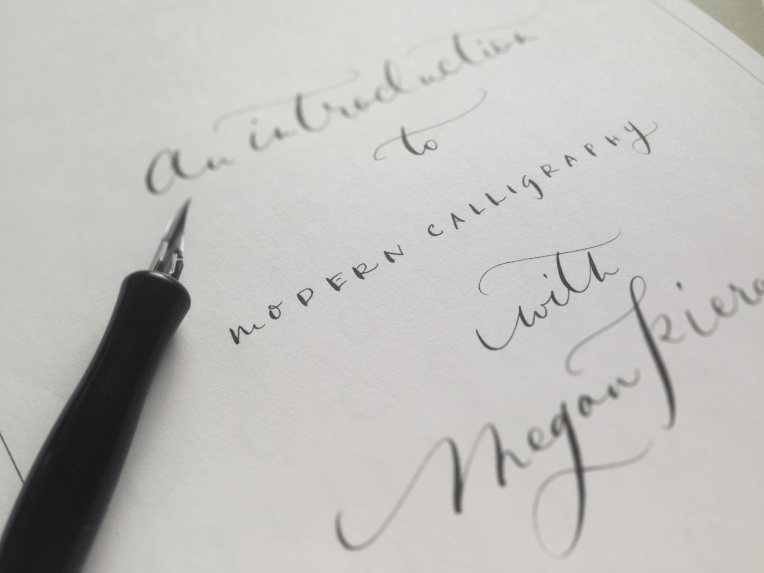 An introduction
to
MODERN CALLIGRAPHY
with
Megan